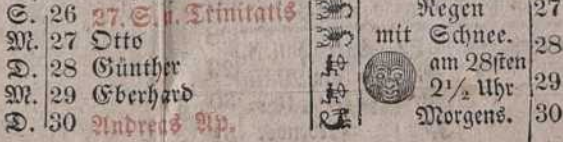 S. 26 27. S. n. Trinitatis Regen 27
M. 27 Otto mit Schnee. 28
D. 28 Günther am 28sten
M. 29 Eberhard 2½ Uhr 29
D. 30 Andreas Ap. Morgens. 30